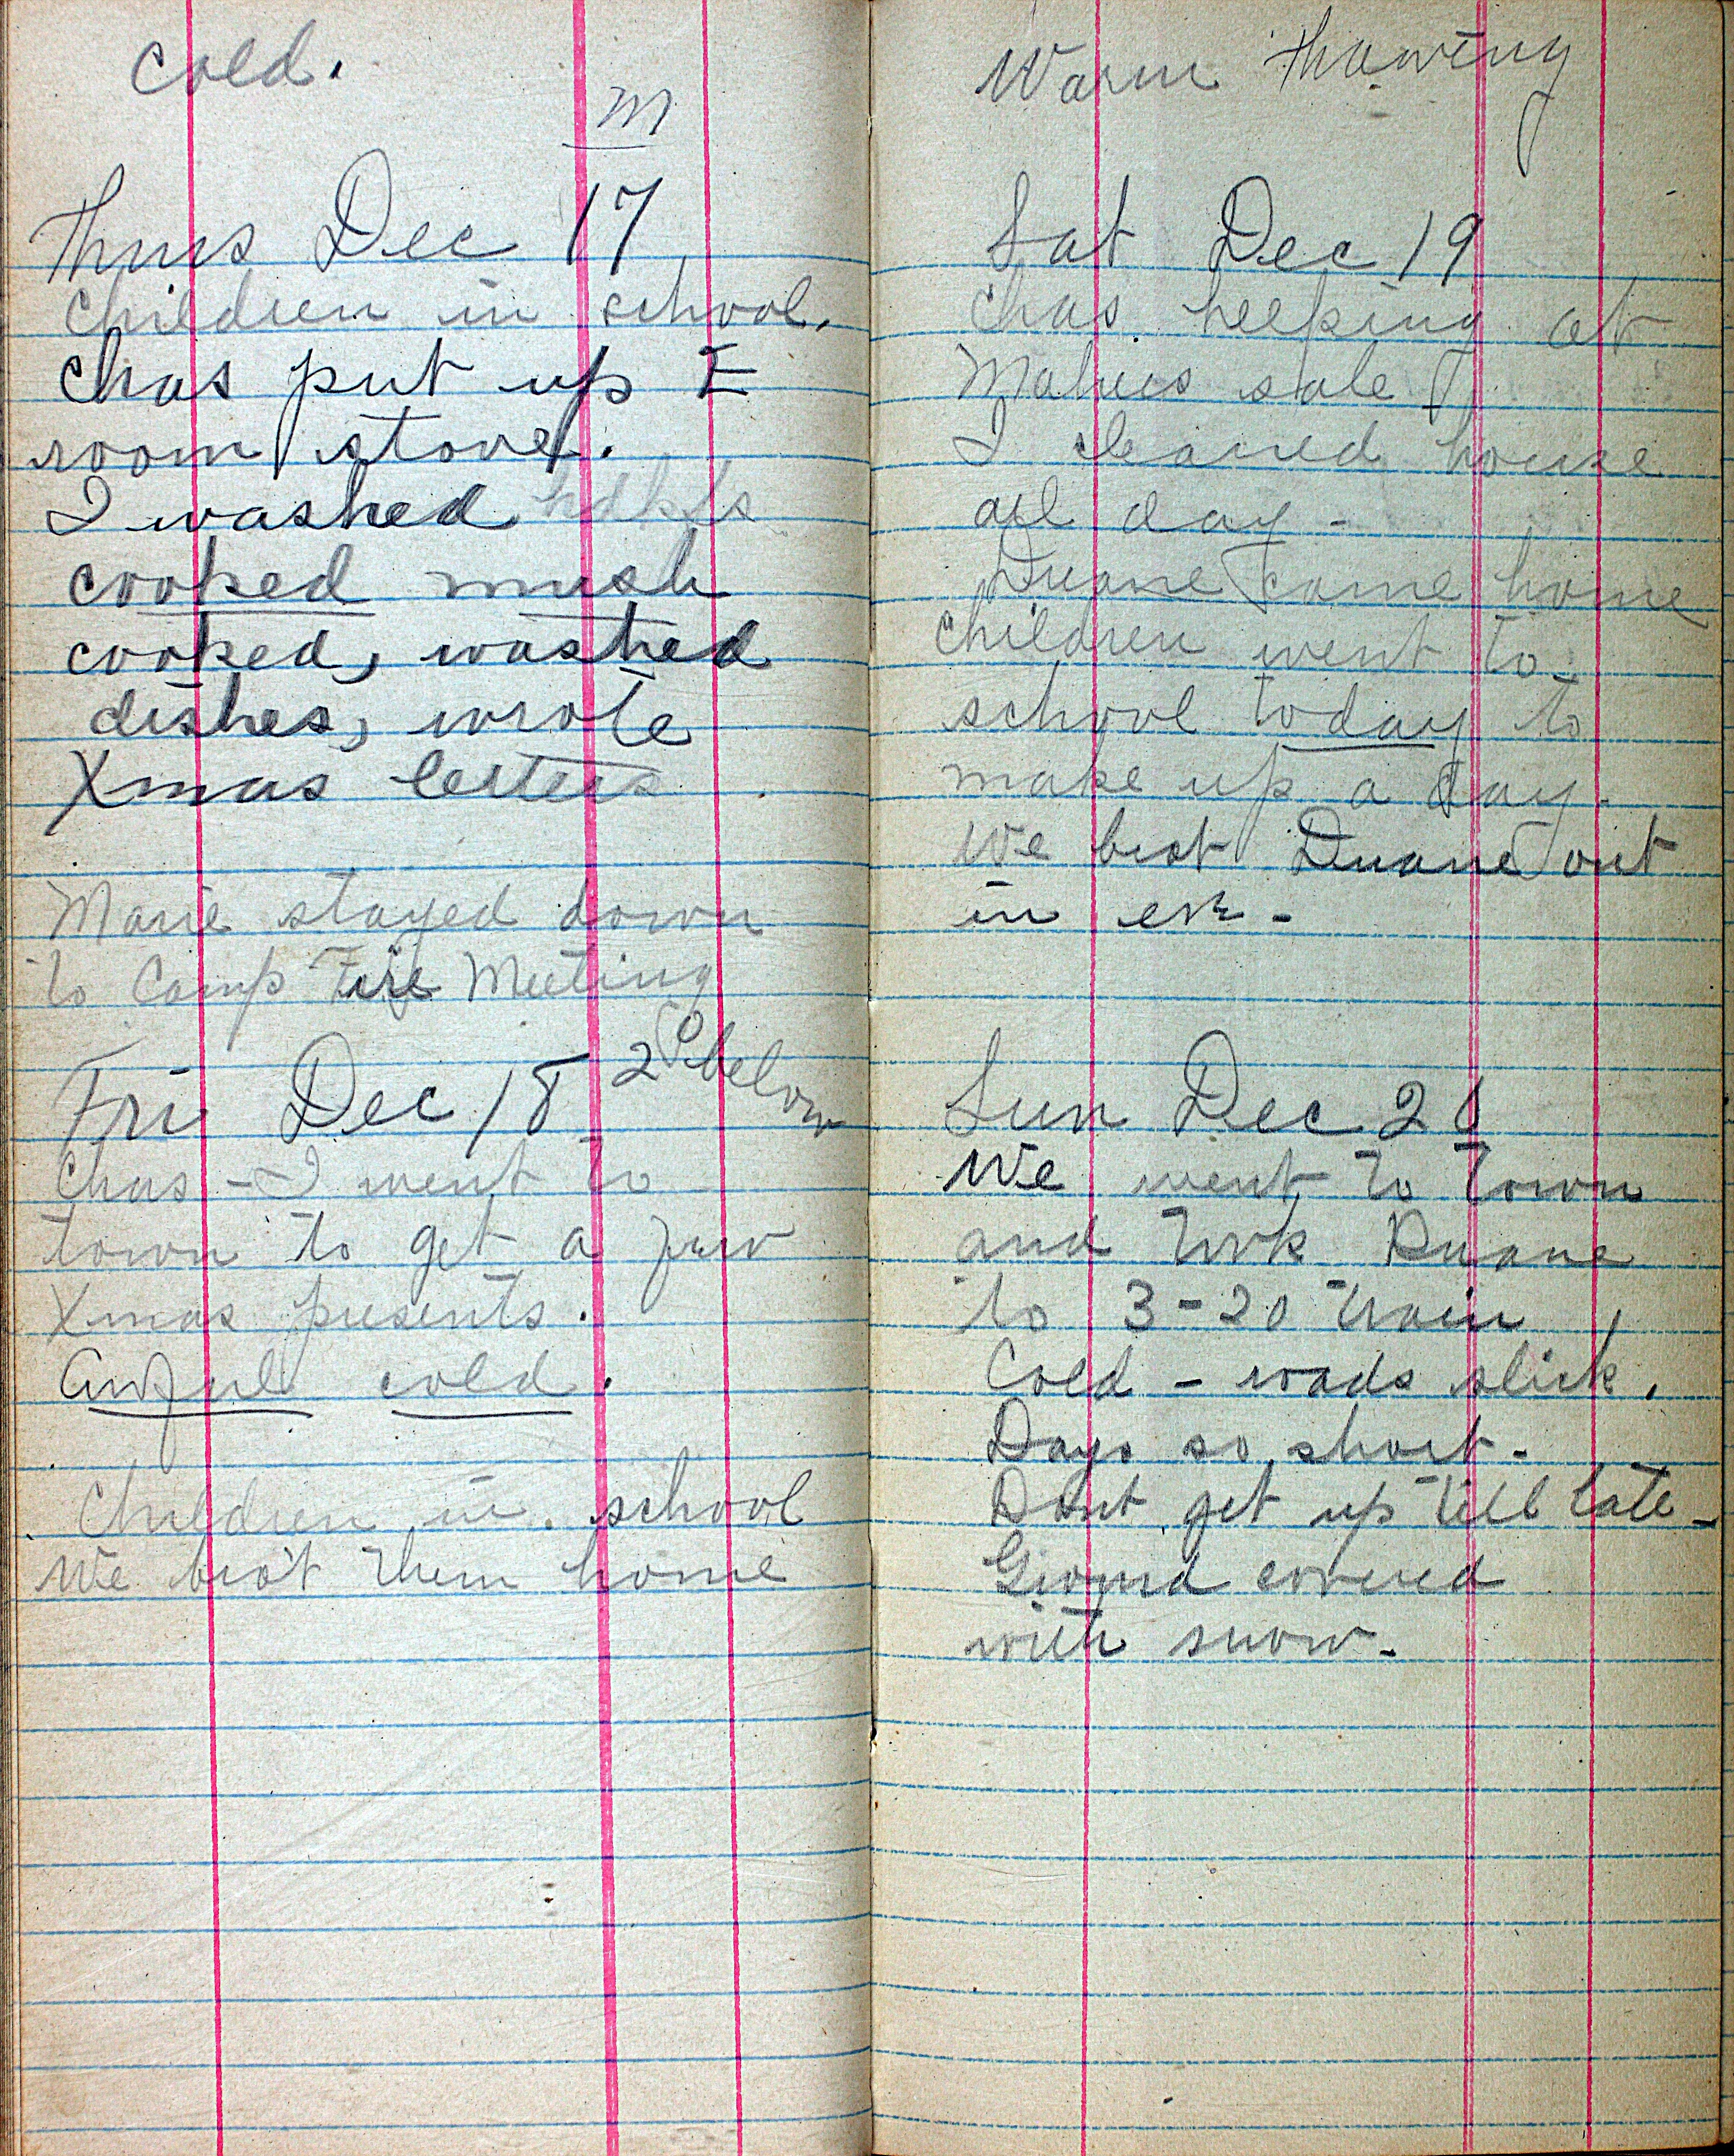 cold.
M
Thurs Dec 17
Children in school.
Chas put up E
room stove.
I washed hdkfs
cooked mush
cooked, washed
dishes, wrote
Xmas letters.
Marie stayed down
to Camp Fire Meeting
Fri Dec 18 2° below
Chas - I went to
town to get a few
Xmas presents.
Awful cold.
Children in school
We bro't them home
Warm thawing
Sat Dec 19
Chas helping at
sale
I cleaned house
all day -
Duane came home
Children went to
school today to
make up a day.
We brot Duane out
in eve -
Sun Dec 20
We went to town
and took Duane
to 3-20 train
Cold - roads slick.
Days so short -
Dont get up till late -
Ground covered
with snow -